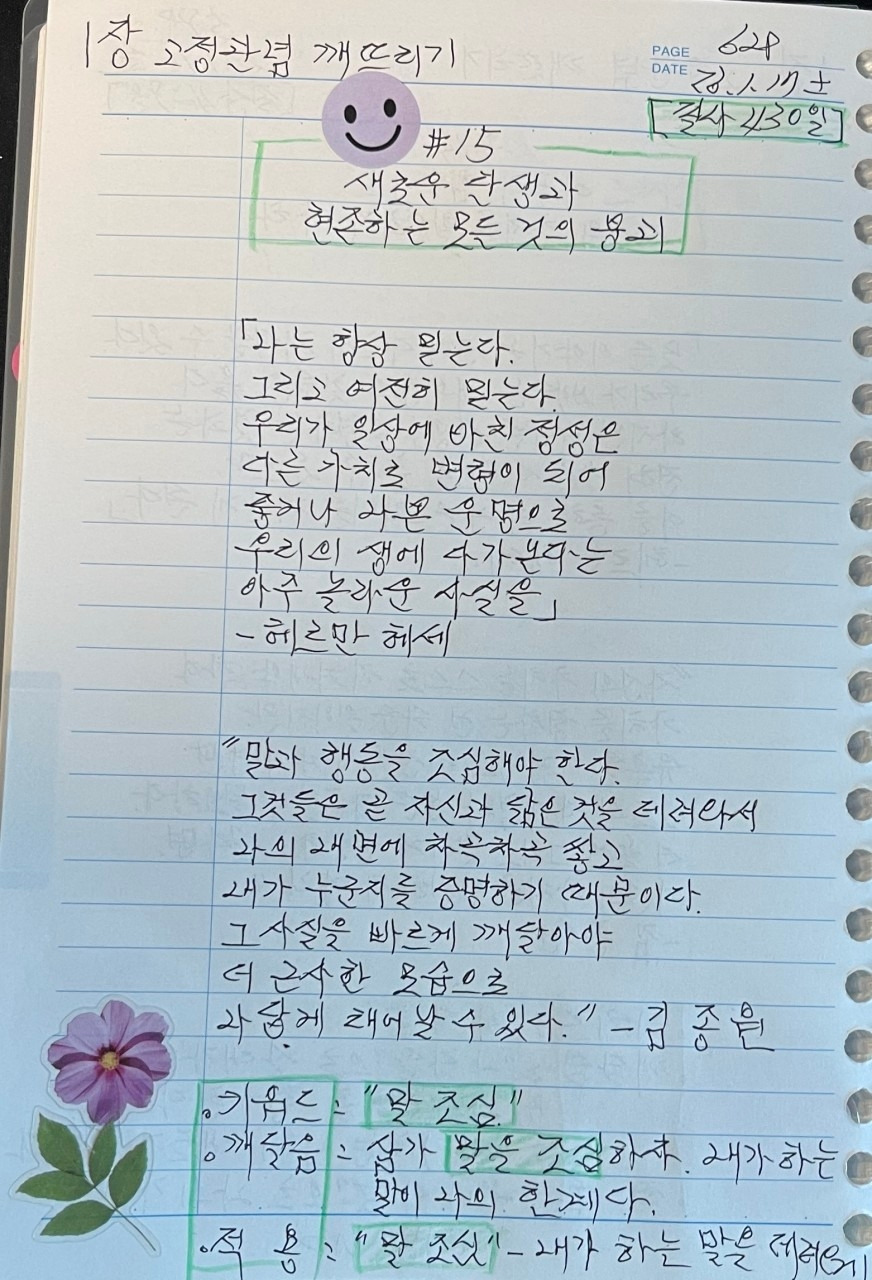 1장 고정관념 깨뜨리기
PAGE 62P
DATE 26.1.17 토
[필사 430일]
#15
새로운 탄생과
현존하는 모든 것의 붕괴
「나는 항상 믿는다.
그리고 여전히 믿는다.
우리가 일상에 바친 정성은
다른 가치로 변형이 되어
좋거나 나쁜 운명으로
우리의 생에 다가온다는
아주 놀라운 사실을」
- 헤르만 헤세
"말과 행동을 조심해야 한다.
그것들은 곧 자신과 닮은 것을 데려와서
나의 내면에 차곡차곡 쌓고
내가 누군지를 증명하기 때문이다.
그 사실을 빠르게 깨달아야
더 근사한 모습으로
나답게 태어날 수 있다." - 김종원
•키워드 : "말 조심"
•깨달음 : 삼가 말을 조심하자. 내가 하는
말이 나의 한계다.
•적 용 : "말 조심" - 내가 하는 말은